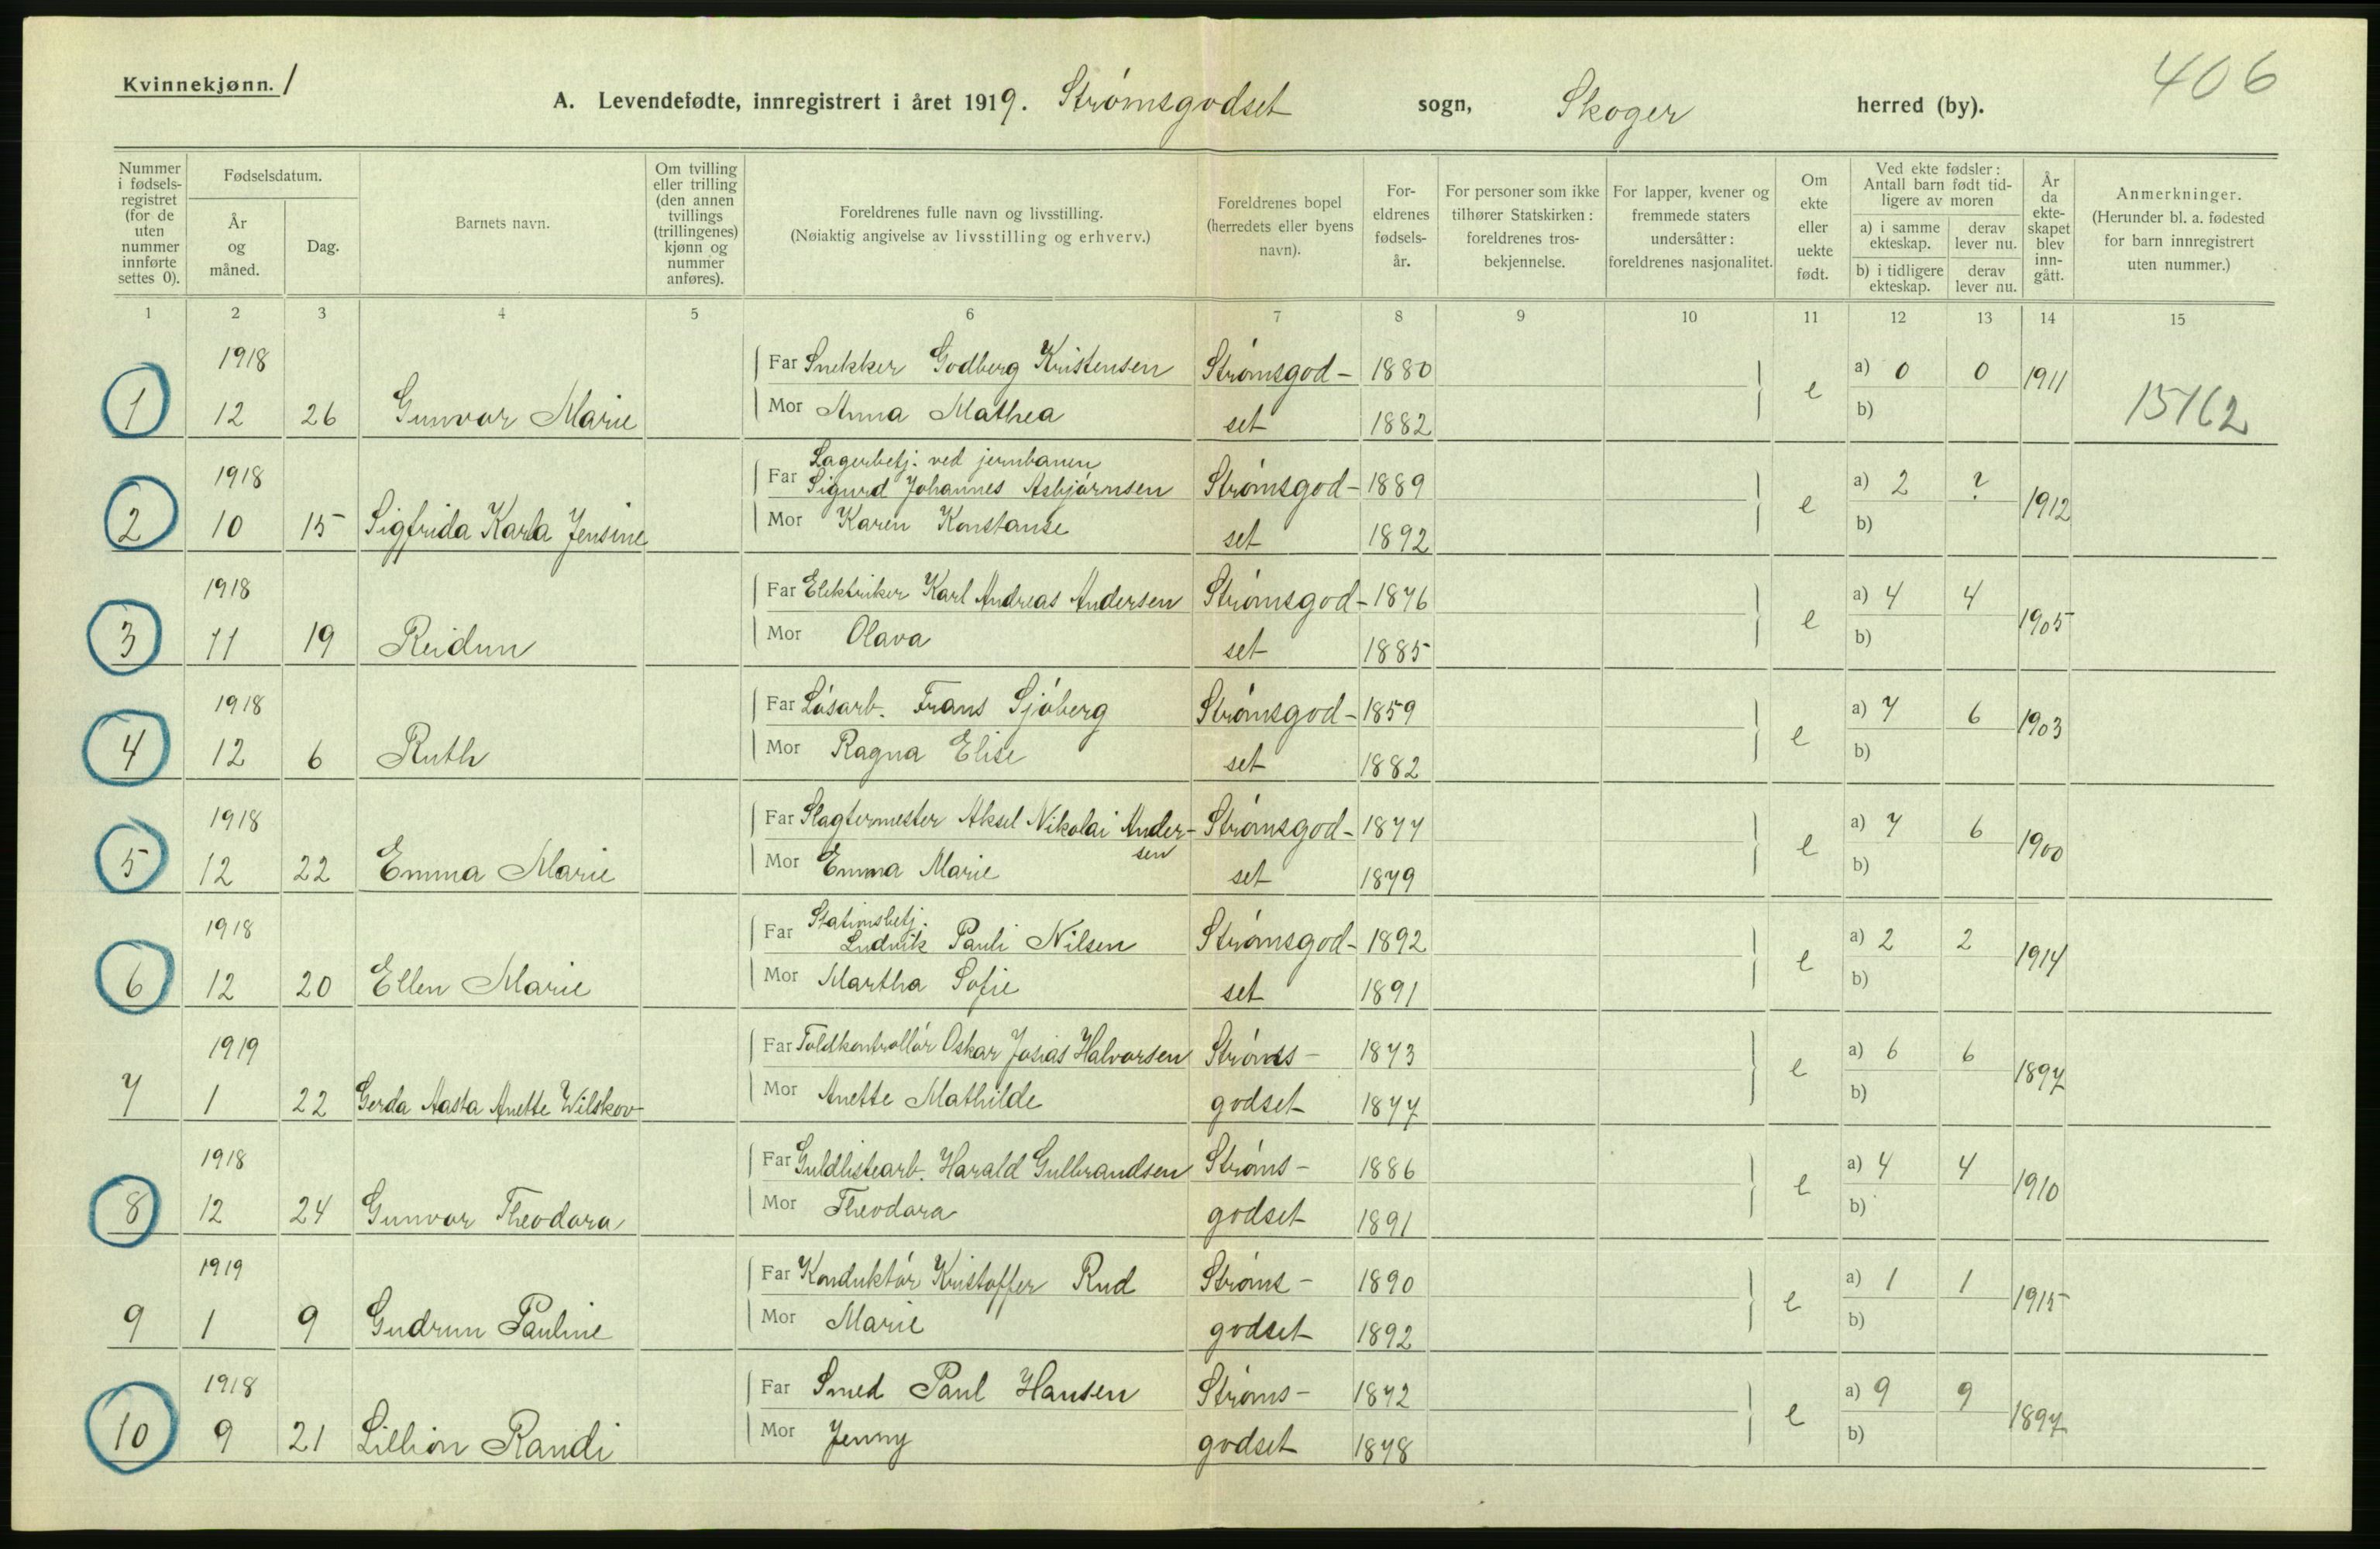 Kvinnekjønn. 1
406
A. Levendefødte, innregistrert i året 1919. Strømsgodset sogn, Skoger herred (by).
Nummer i fødsels-registret (for de uten nummer innførte settes 0).
Fødselsdatum.
År og måned.
Dag.
Barnets navn.
Om tvilling eller trilling (den annen tvillings (trillingenes) kjønn og nummer anføres).
Foreldrenes fulle navn og livsstilling.
(Nøiaktig angivelse av livsstilling og erhverv.)
Foreldrenes bopel (herredets eller byens navn).
For-eldrenes fødsels-år.
For personer som ikke tilhører Statskirken: foreldrenes tros-bekjennelse.
For lapper, kvener og fremmede staters undersåtter: foreldrenes nasjonalitet.
Om ekte eller uekte født.
Ved ekte fødsler: Antall barn født tid-ligere av moren
a) i samme ekteskap.
derav lever nu.
b) i tidligere ekteskap.
derav lever nu.
År da ekte-skapet blev inn-gått.
Anmerkninger.
(Herunder bl. a. fødested for barn innregistrert uten nummer.)
1 2 3 4 5 6 7 8 9 10 11 12 13 14 15
1918 Far Snekker Godberg Kristensen Strømsgod- 1880 a) 0 0
1 12 26 Gunvor Marie Mor Anna Mathea set 1882 e b) 1911 15162
Lagerbetj. ved jernbanen
1918 Far Sigurd Johannes Asbjørnsen Strømsgod- 1889 a) 2 ?
2 10 15 Sigfrida Karla Jensine Mor Karen Konstanse set 1892 e b) 1912
1918 Far Elektriker Karl Andreas Andersen Strømsgod- 1876 a) 4 4
3 11 19 Reidun Mor Olava set 1885 e b) 1905
1918 Far Løsarb. Frans Sjøberg Strømsgod- 1859 a) 7 6
4 12 6 Ruth Mor Ragna Elise set 1882 e b) 1903
1918 Far Slagtermester Aksel Nikolai Ander- Strømsgod- 1877 a) 7 6
sen
5 12 22 Emma Marie Mor Emma Marie set 1879 e b) 1900
Stationsbetj.
1918 Far Ludvik Pauli Nilsen Strømsgod- 1892 a) 2 2
6 12 20 Ellen Marie Mor Martha Sofie set 1891 e b) 1914
1919 Far Toldkontrollør Oskar Josias Halvorsen Strøms- 1873 a) 6 6
7 1 22 Gerda Aasta Anette Wilskov Mor Anette Mathilde godset 1877 e b) 1897
1918 Far Guldlistearb. Harald Gulbrandsen Strøms- 1886 a) 4 4
8 12 24 Gunvor Theodora Mor Theodora godset 1891 e b) 1910
1919 Far Konduktør Kristoffer Rud Strøms- 1890 a) 1 1
9 1 9 Gudrun Pauline Mor Marie godset 1892 e b) 1915
1918 Far Smed Paul Hansen Strøms- 1872 a) 9 9
10 9 21 Lillion Randi Mor Jenny godset 1878 e b) 1897